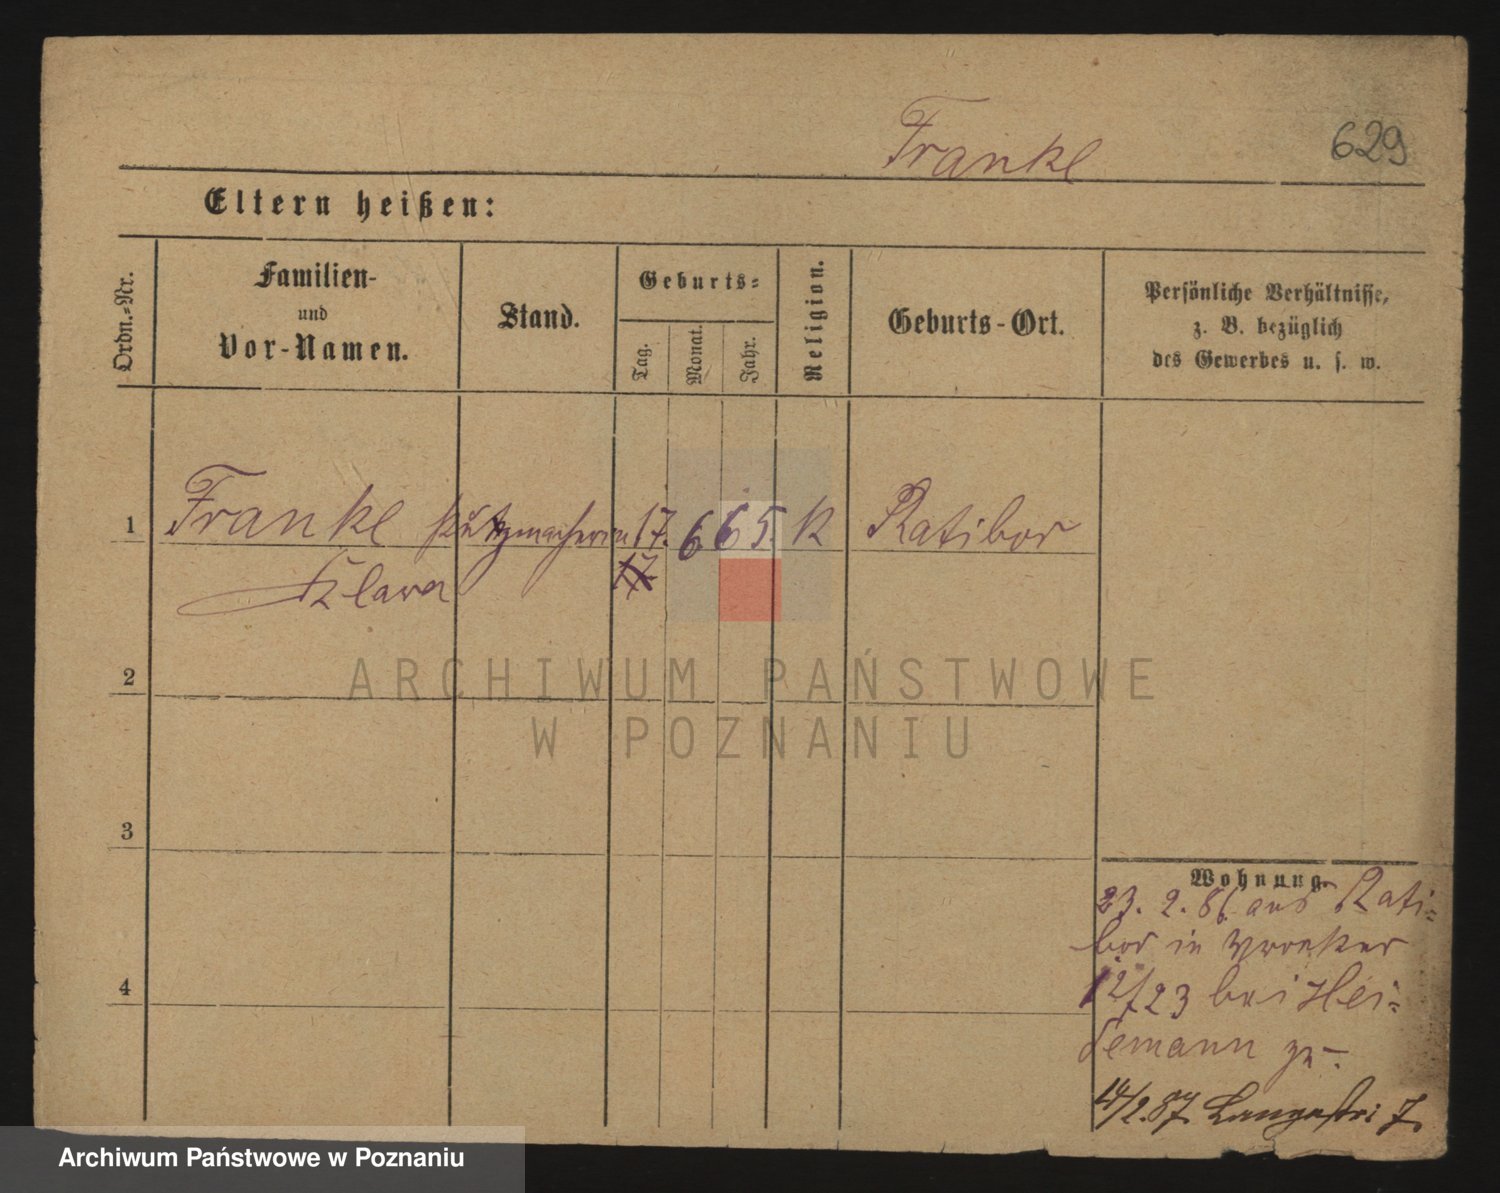 Frankl
629
Eltern heißen:
Ordn.-Nr.
Familien-
und
Vor-Namen.
Stand.
Geburts-
Tag.
Monat.
Jahr.
Religion.
Geburts-Ort.
Persönliche Verhältnisse,
z. B. bezüglich
des Gewerbes u. s. w.
1 Frankl Putzmacherin 17. 6 65. K Ratibor
17
Klara
2
3
4
Wohnung
23. 2. 86 aus Rati-
bor in
12/23 bei Hei-
demann zu.
2. 87. Langestr. 7.
ARCHIWUM PAŃSTWOWE
W POZNANIU
Archiwum Państwowe w Poznaniu